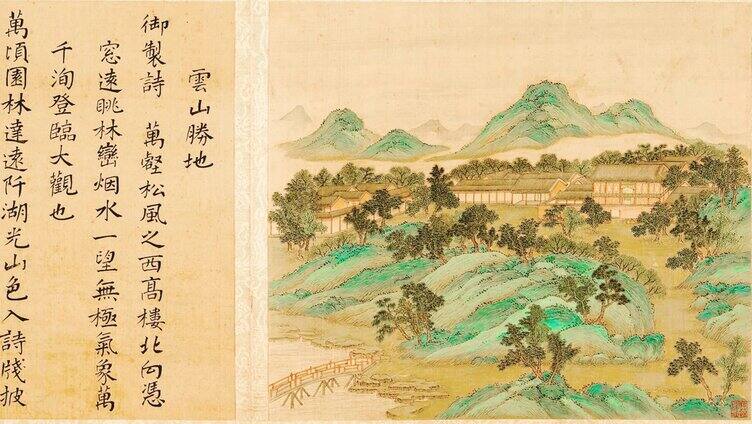 雲山勝地
御製詩 萬壑松風之西高樓北向憑
窓遠眺林巒烟水一望無極氣象萬
千洵登臨大觀也
萬頃園林達遠阡湖光山色入詩牋披